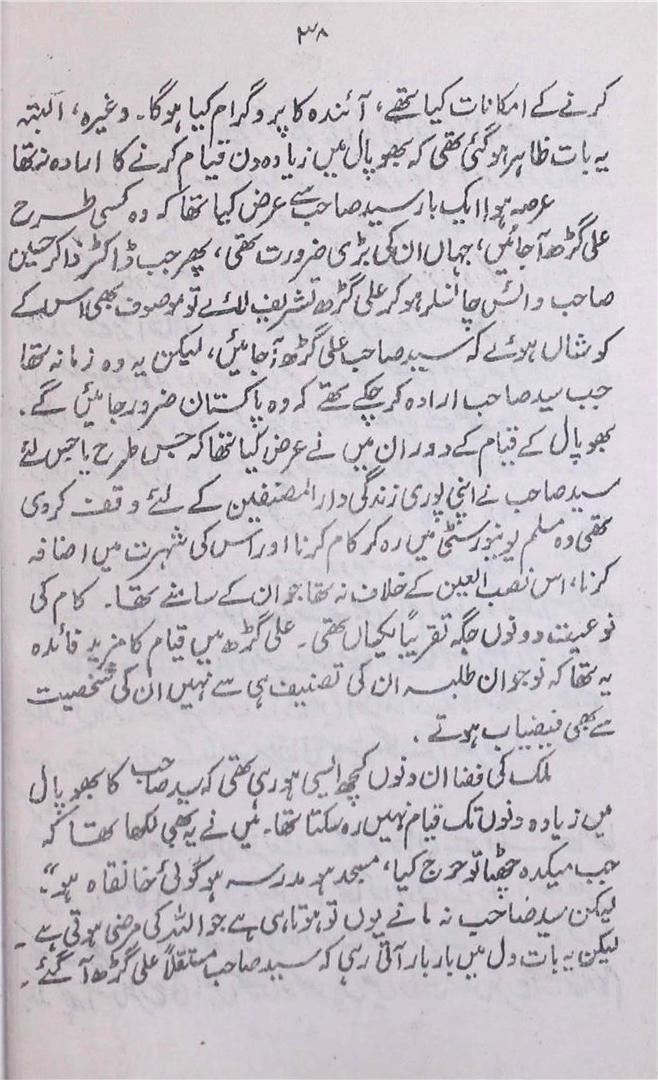 ۳۸
کرنے کے امکانات کیا تھے، آئندہ کا پروگرام کیا ہوگا۔ وغیرہ، البتہ
یہ بات ظاہر ہوگئی تھی کہ بھوپال میں زیادہ دن قیام کرنے کا ارادہ نہ تھا
عرصہ ہوا ایک بار سید صاحب سے عرض کیا تھا کہ وہ کسی طرح
علی گڑھ آجائیں، جہاں ان کی بڑی ضرورت تھی، پھر جب ڈاکٹر ذاکر حسین
صاحب وائس چانسلر ہوکر علی گڑھ تشریف لائے تو موصوف بھی اس کے
کوشاں ہوئے کہ سید صاحب علی گڑھ آجائیں، لیکن یہ وہ زمانہ تھا
جب سید صاحب ارادہ کرچکے تھے کہ وہ پاکستان ضرور جائیں گے۔
بھوپال کے قیام کے دوران میں نے عرض کیا تھا کہ جس طرح یا جس لئے
سید صاحب نے اپنی پوری زندگی دارالمصنفین کے لئے وقف کردی
تھی وہ مسلم یونیورسٹی میں رہ کر کام کرنا اور اس کی شہرت میں اضافہ
کرنا، اس نصب العین کے خلاف نہ تھا جو ان کے سامنے تھا۔ کام کی
نوعیت دونوں جگہ تقریباً یکساں تھی۔ علی گڑھ میں قیام کا مزید فائدہ
یہ تھا کہ نوجوان طلبہ ان کی تصنیف ہی سے نہیں ان کی شخصیت
سے بھی فیضیاب ہوتے۔
ملک کی فضا ان دنوں کچھ ایسی ہورہی تھی کہ سید صاحب کا بھوپال
میں زیادہ دنوں تک قیام نہیں رہ سکتا تھا۔ میں نے یہ بھی لکھا تھا کہ
جب میکدہ چھٹا تو حرج کیا، مسجد ہو مدرسہ ہو کوئی خانقاہ ہو"۔
لیکن سید صاحب نہ مانے یوں تو ہوتا وہی ہے جو اللہ کی مرضی ہوتی ہے۔
لیکن یہ بات دل میں بار بار آتی رہی کہ سید صاحب مستقلاً علی گڑھ آگئے۔